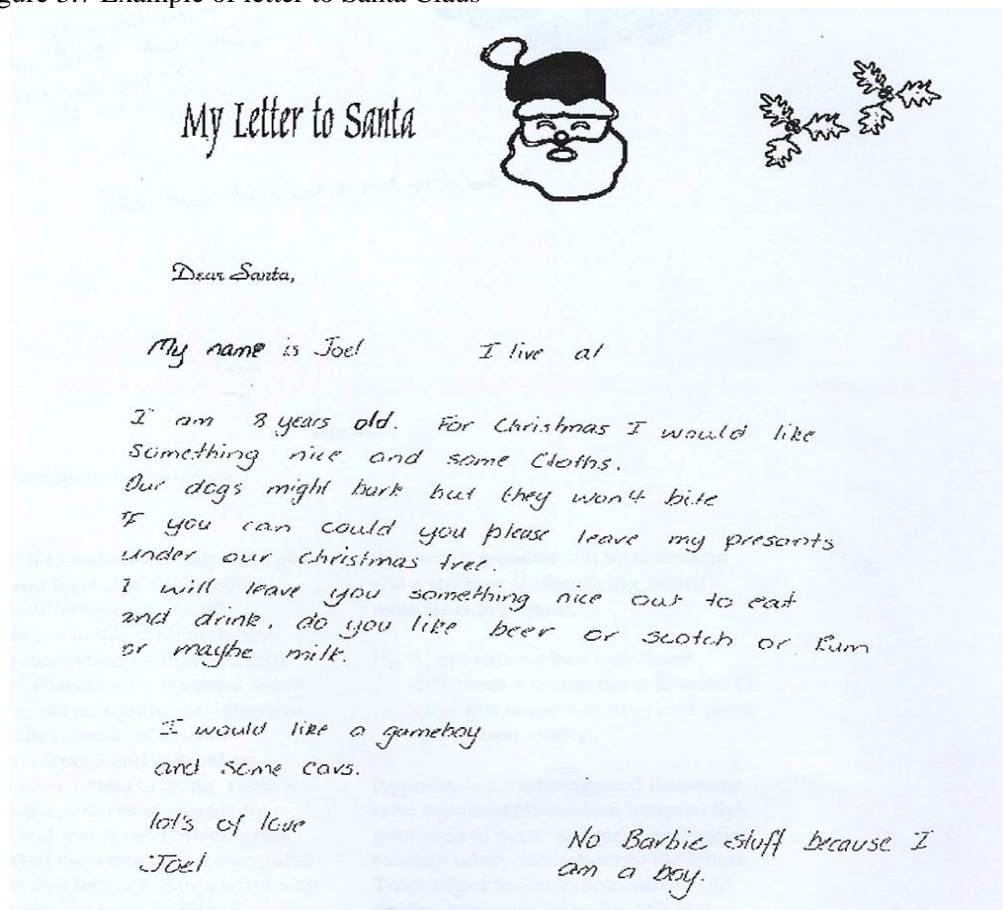 gure 3.7 Example of letter to Santa Claus
My Letter to Santa
Dear Santa,
My name is Joel I live at
I am 8 years old. For Christmas I would like
something nice and some Cloths.
Our dogs might bark but they won't bite
If you can could you please leave my presants
under our christmas tree.
I will leave you something nice out to eat
and drink, do you like beer or scotch or Rum
or maybe milk.
I would like a gameboy
and some cars.
lot's of love
Joel
No Barbie stuff because I
am a boy.